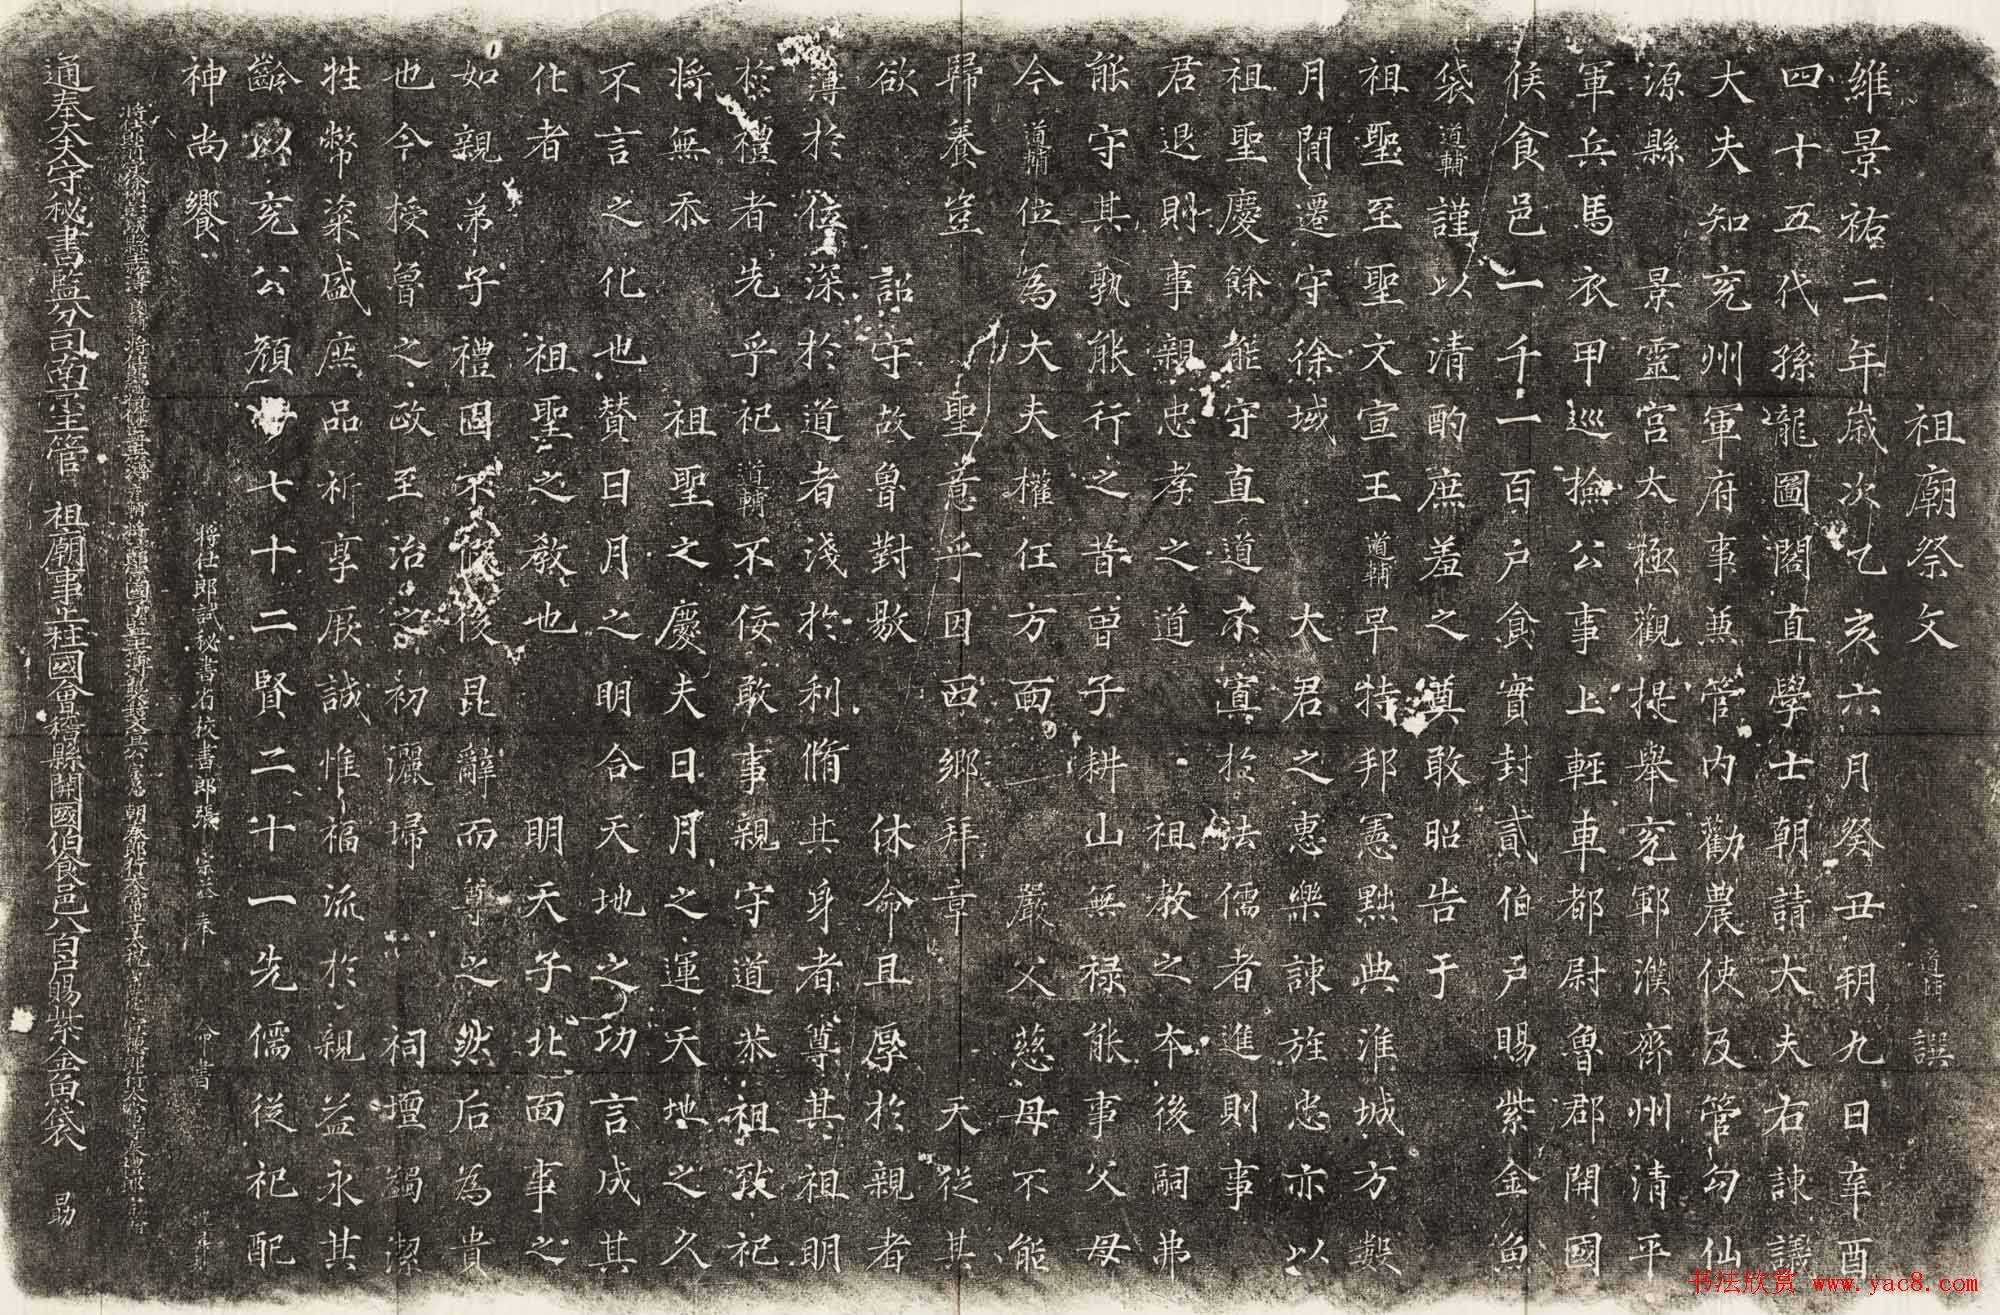 祖廟祭文 道輔 譔
維景祐二年歲次乙亥六月癸丑朔九日辛酉
四十五代孫龍圖閣直學士朝請大夫右諫議
大夫知兗州軍府事兼管內勸農使及管勾仙
源縣 景靈宮太極觀提舉兗鄆濮齊州清平
軍兵馬衣甲巡撿公事上輕車都尉魯郡開國
侯食邑一千一百戶食實封貳伯戶賜紫金魚
袋道輔謹以清酌庶羞之奠敢昭告于
祖聖至聖文宣王道輔早特邦憲黜典淮城方數
月間遷守徐域 大君之惠樂諫旌忠亦以
祖聖慶餘能守直道不寘於法儒者進則事
君退則事親忠孝之道 祖教之本後嗣弗
能守其孰能行之昔曾子耕山無祿能事父母
今道輔位為大夫權任方面 嚴父慈母不能
歸養豈 聖意乎因西鄉拜章 天從其
欲 詔守故魯對敭 休命且厚於親者
薄於位深於道者淺於利脩其身者尊其祖明
於禮者先乎祀道輔不佞敢事親守道恭祖致祀
將無忝 祖聖之慶夫日月之運天地之久
不言之化也贊日月之明合天地之功言成其
化者 祖聖之教也 明天子北面事之
如親弟子禮固不俟後昆辭而尊之然后為貴
也今授魯之政至治之初灑埽 祠壇蠲潔
牲幣粢盛庶品祈享厥誠惟福流於親益永其
齡以兗公顏子七十二賢二十一先儒從祀配
神尚饗
將仕郎試秘書省校書郎張 宗益 奉 命書
通奉大夫守秘書監分司南京管 祖廟事上柱國會稽縣開國伯食邑八百戶賜紫金魚袋 勗
书法欣赏 www.yac8.com